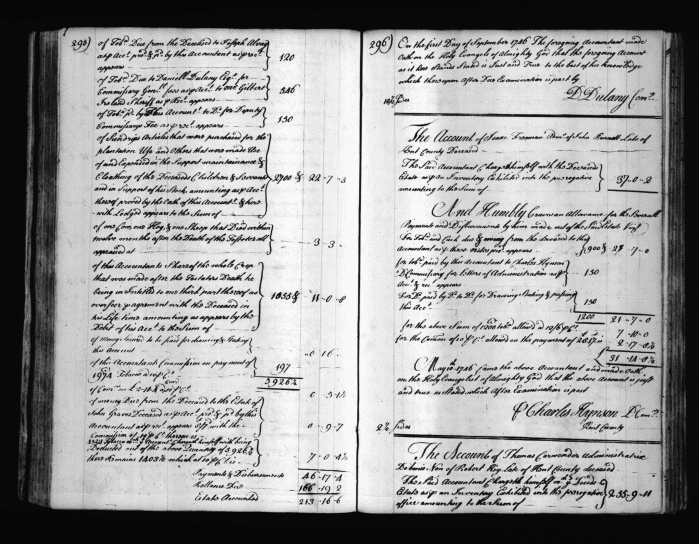 295)
of Tobo. Due from the Deceased to Joseph
as p Acct. prd. & pd. by the Accountant as p rect.
appears 120
of Tobo. Due to Daniell Dulany Esqr. for
Commissary Genll. fees as p Acct. to one Gilbert
Ireland Sheriff as p Rect. appears 346
of Tobo. pd. by this Accountt. to Do. for Deputy
Commissarys Fee as p rect. appears 150
of Sundrys Articles that were purchased for the
plantation Use and Others that were made Use
of and Expended in the Support maintainance &
Cloathing of the Deceaseds Children & Servants 2700 & 22 - 7 - 3
and in Support of his Stock amounting as p Acct.
thereof proved by the Oath of this Accountt. & here
with Lodged appears to the Sum of
of one Cow, one Hog, & one Sheep that Died within
twelve months after the Death of the Testator all
appraised at 3 - 3 -
of this Accountants Share of the whole Crop
that was made after the Testators Death he
being Intitled to one third part thereof as
overseer p agreement with the Deceased in 1033 & 11 - 0 - 8
his Life time amounting as appears by the
Debit of his Acct. to the Sum of
of money
this Amount 0 16
of this Accountants Commission on payment of
197
5926½
of Comn. on
of money Due from the Deceased to the Estate of
John Graves Deceased as p Acct. prd. & pd. by this
Accountant as p rect. appears 0 - 9 - 7
Commission
Deducted out of the above Quantity of 5926½
there Remains 14032 which at 7 - 0 - 4½
Payments & Disbursements 46 - 17 - 4
Ballance Due 166 - 19 - 2
Estate Accounted 213 - 16 - 6
296)
On the first Day of September 1726 The foregoing Accountant made
Oath on the Holy Evangels of Almighty God that the foregoing Account
as it now Stands Stated is Just and True to the best of his knowledge
which thereupon after Due Examination is past by
D. Dulany Comry.
The Account of Isaac Freeman Admr. of John Burnall Late of
Kent County Deceased
The Said Accountant Chargeth himself with the Deceaseds
Estate as p an Inventory Exhibited into the prerogative 37 - 0 - 2
amounting to the Sum of
And Humbly Craves an Allowance for the Severall
Payments and Disbursments by him made out of the Said Estate Vizt.
For Tobo. and Cash due & owing from the deceased to this
Accountant as p three notes pd. appears 900 & 7 - 0
for tobo. paid by this Accountant to Charles Hynson
D. Commissary for Letters of Administration as p
Act. & rect. appears 150
For Do. paid by Do. to Do. for Drawing Stating & passing
this Acct. 150
1200 21 - 7 - 0
for the above Sum of 1200 tobo. allowd. at 12/6 p Ct. 7 - 10 - 0
for the Comon. of 10 p Ct. allowd. on the payment of 2 - 17 - 8½
31 - 14 - 8½
May 10th. 1726 Came the above Accountant and made Oath
on the Holy Evangelist of Almighty God that the above Account is just
and true as Stated which After Examination is past
p Charles Hynson D. Comry.
Kent County
The Account of Thomas Administratr.
De bonis Non of Robert Hog Late of Kent County deceased
The Said Accountant Chargeth himself with ye Deceds.
Estate as p an Inventory Exhibited into the prerogative 235 - 9 - 11
office amounting to the Sum of